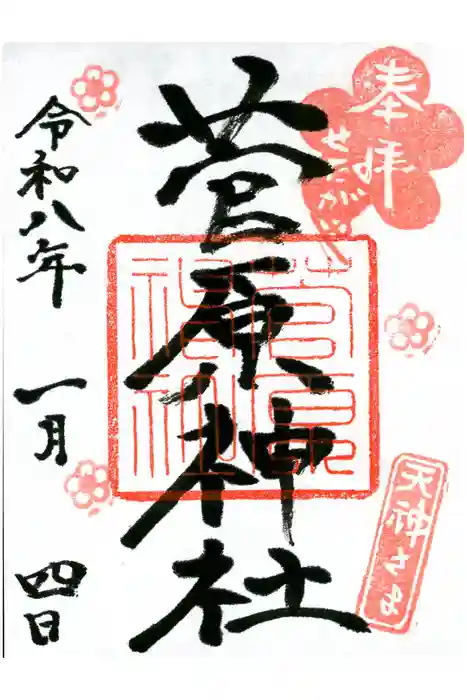 奉拝
せたがや
菅原神社
菅原
神社
天神さま
令和八年
一月
四日